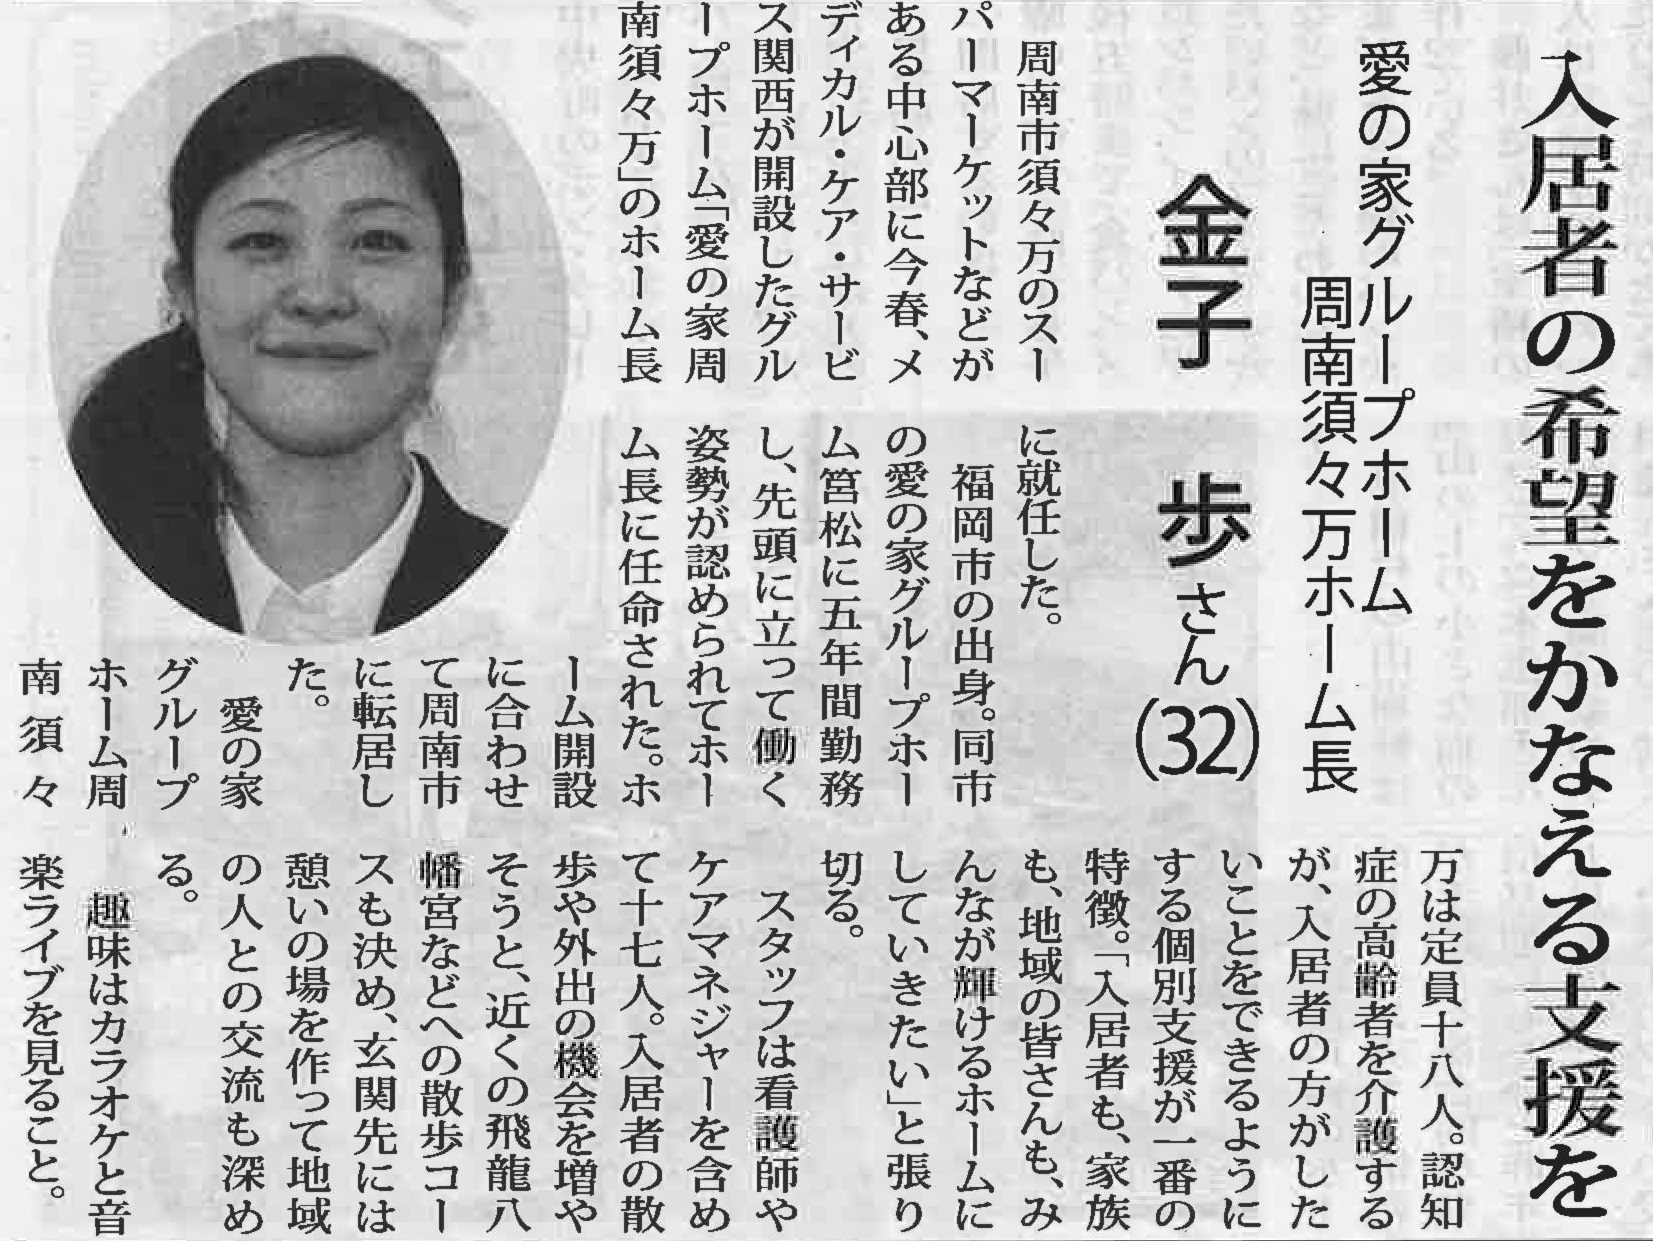 入居者の希望をかなえる支援を
愛の家グループホーム
周南須々万ホーム長
金子 歩さん(32)
周南市須々万のスー
パーマーケットなどが
ある中心部に今春、メ
ディカル・ケア・サービ
ス関西が開設したグル
ープホーム「愛の家周
南須々万」のホーム長
に就任した。
福岡市の出身。同市
の愛の家グループホー
ム筥松に五年間勤務
し、先頭に立って働く
姿勢が認められてホー
ム長に任命された。ホ
ーム開設
に合わせ
て周南市
に転居し
た。
愛の家
グループ
ホーム周
南須々
万は定員十八人。認知
症の高齢者を介護する
が、入居者の方がした
いことをできるように
する個別支援が一番の
特徴。「入居者も、家族
も、地域の皆さんも、み
んなが輝けるホームに
していきたい」と張り
切る。
スタッフは看護師や
ケアマネジャーを含め
て十七人。入居者の散
歩や外出の機会を増や
そうと、近くの飛龍八
幡宮などへの散歩コー
スも決め、玄関先には
憩いの場を作って地域
の人との交流も深め
る。
趣味はカラオケと音
楽ライブを見ること。